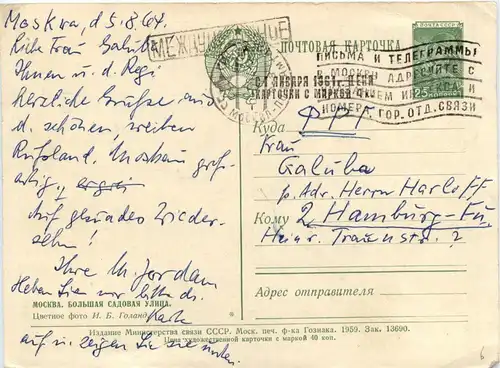 Moskau, d 5.8.64.
Frau
Ihnen u. d. Regi
herzliche Grüße aus
d. schönen, weiten
Rußland. Moskau groß-
artig,
Auf gesundes Wieder-
sehen!
Ihre M. Jordan
Heben Sie mir bitte d.
Karte
auf u. zeigen Sie sie
МОСКВА. БОЛЬШАЯ САДОВАЯ УЛИЦА.
Цветное фото И. Б. Голанд
МЕЖДУ
ПОЧТОВАЯ КАРТОЧКА
ПОЧТА СССР
ПИСЬМА И ТЕЛЕГРАММЫ
В МОСКВУ АДРЕСУЙТЕ С
НОМЕРА ГОР. ОТД. СВЯЗИ
С 1 ЯНВАРЯ 1961 г. ЦЕНА
КАРТОЧКИ С МАРКОЙ
МОСКВА
Куда
Frau
Galuba
p. Adr. Herrn Harloff
Кому 2 Hamburg-Fu.
Heinr. Traunstr. 2
Адрес отправителя
Издание Министерства связи СССР. Моск. печ. ф-ка Гознака. 1959. Зак. 13690.
Цена художественной карточки с маркой 40 коп.